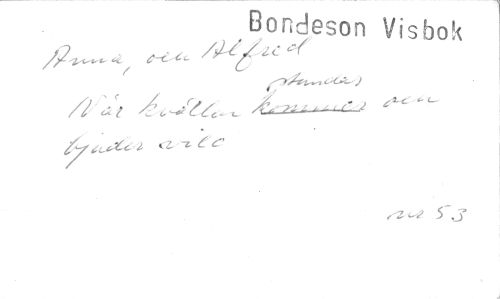 Bondeson Visbok
Anna, och Alfred
stundas
När kvällen kommer och
bjuder vila
nr 53